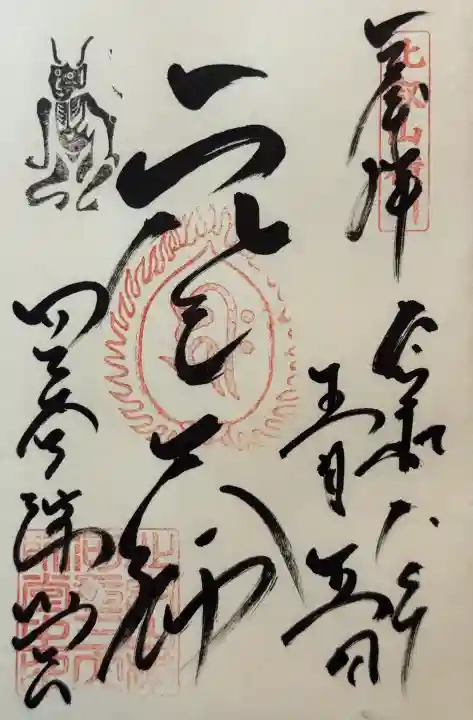 奉拝
比叡山横川
令和六年
五月五日
元三大師
四季講堂